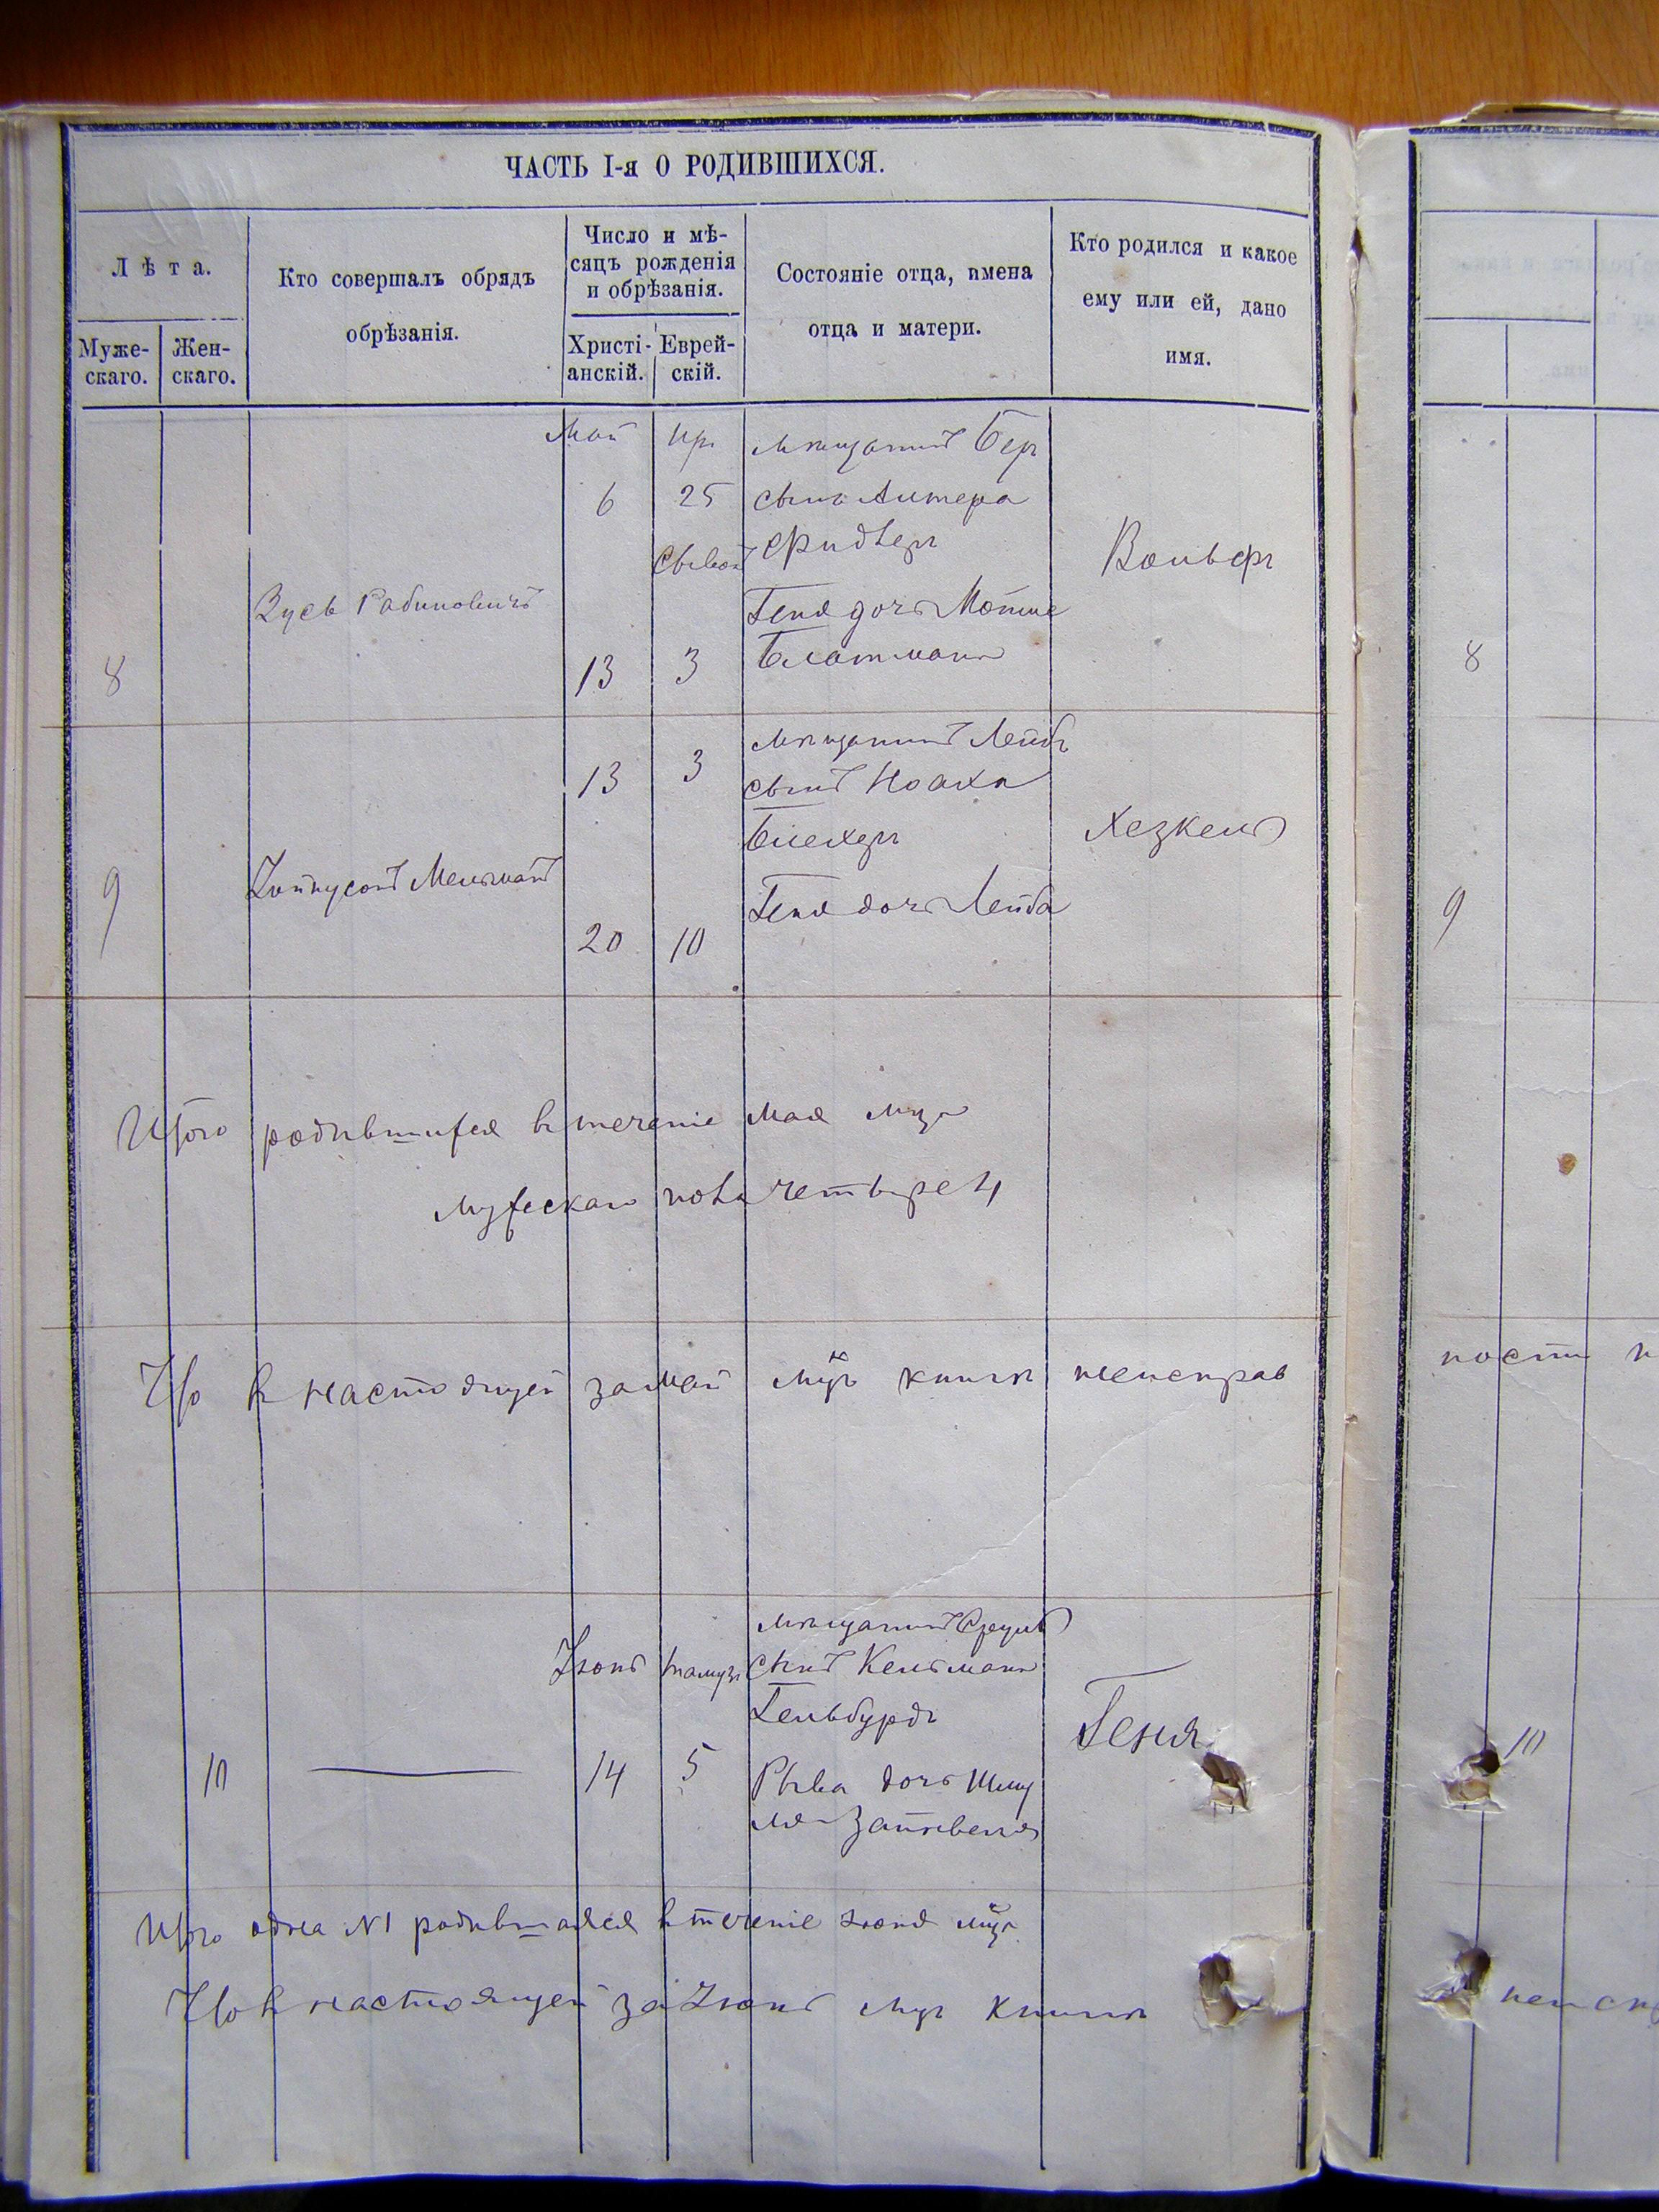 ЧАСТЬ I-я О РОДИВШИХСЯ.
Лѣта.
Муже-
скаго.
Жен-
скаго.
Кто совершалъ обрядъ
обрѣзанія.
Число и мѣ-
сяцъ рожденія
и обрѣзанія.
Христі-
анскій.
Еврей-
скій.
Состояніе отца, имена
отца и матери.
Кто родился и какое
ему или ей, дано
имя.
8
Зусь Рабиновичъ
Май
6
13
Ир
25
Сывон
3
мѣщанинъ Беръ
сынъ Алтера
Фридъеръ
Геня дочь Мотше
Блатмана
Вольфъ
8
9
Мельманъ
13
20
3
10
мѣщанинъ Лейбъ
сынъ Ноаха
Блехеръ
Геня дочь Лейба
Хезкель
9
Итого родившихся въ теченіе мая мца
мужескаго пола четыре 4
Что въ настоящей за май мцъ книгѣ неисправ
ности н
10
Іюнь
14
тамузъ
5
мѣщанинъ Сруль
сынъ Кельмана
Гельбурдъ
Рыва дочь Шму
ля
Геня
10
Итого одна №1 родившаяся въ теченіе іюня мца
Что въ настоящей за Іюнь мцъ книгѣ
неисп